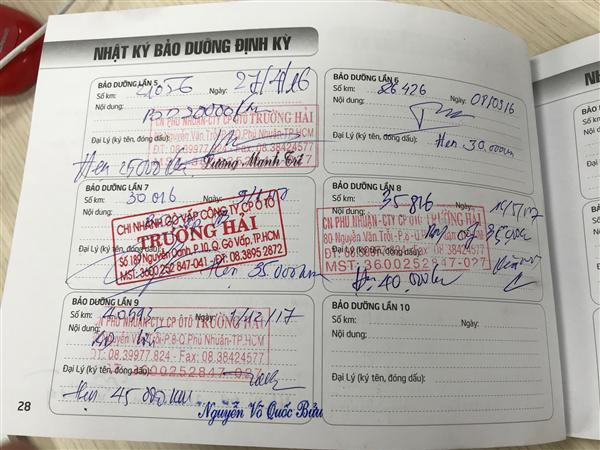 NHẬT KÝ BẢO DƯỠNG ĐỊNH KỲ
BẢO DƯỠNG LẦN 5
Số km: 21056 Ngày: 27/4/16
Nội dung: BD 20000km
CN PHÚ NHUẬN-CTY CP ÔTÔ TRƯỜNG HẢI
80 Nguyễn Văn Trỗi-P.8-Q.Phú Nhuận-TP.HCM
ĐT: 08.39977.824 - Fax: 08.38424577
Đại Lý (ký tên, đóng dấu):
Hẹn 25000km Dương Mạnh Trí
BẢO DƯỠNG LẦN 6
Số km: 26426 Ngày:
Nội dung:
Đại Lý (ký tên, đóng dấu): Hẹn 30.000km
BẢO DƯỠNG LẦN 7
Số km: 30016 Ngày:
Nội dung:
CHI NHÁNH GÒ VẤP CÔNG TY CP ÔTÔ
TRƯỜNG HẢI
Số 189 Nguyễn Oanh, P.10, Q. Gò Vấp, TP.HCM
MST: 3600 252 847-041 - ĐT: 08.3895 2872
Hẹn 35.000km
BẢO DƯỠNG LẦN 8
Số km: 35816 Ngày: /5/17
Nội dung:
CN PHÚ NHUẬN-CTY CP ÔTÔ TRƯỜNG HẢI
80 Nguyễn Văn Trỗi-P.8-Q.
ĐT: 08.39977.824 - Fax: 08.38424577
MST: 3600252847-027
H: 40 000km
BẢO DƯỠNG LẦN 9
Số km: 40593 Ngày: 1/12/17
Nội dung:
CN PHÚ NHUẬN-CTY CP ÔTÔ TRƯỜNG HẢI
80 Nguyễn Văn Trỗi-P.8-Q Phú Nhuận-TP.HCM
ĐT: 08.39977.824 - Fax: 08.38424577
MST: 3600252847-027
Đại Lý (ký tên, đóng dấu):
Hẹn 45 000km
Nguyễn Võ Quốc Bửu
BẢO DƯỠNG LẦN 10
Số km: Ngày:
Nội dung:
Đại Lý (ký tên, đóng dấu):
28